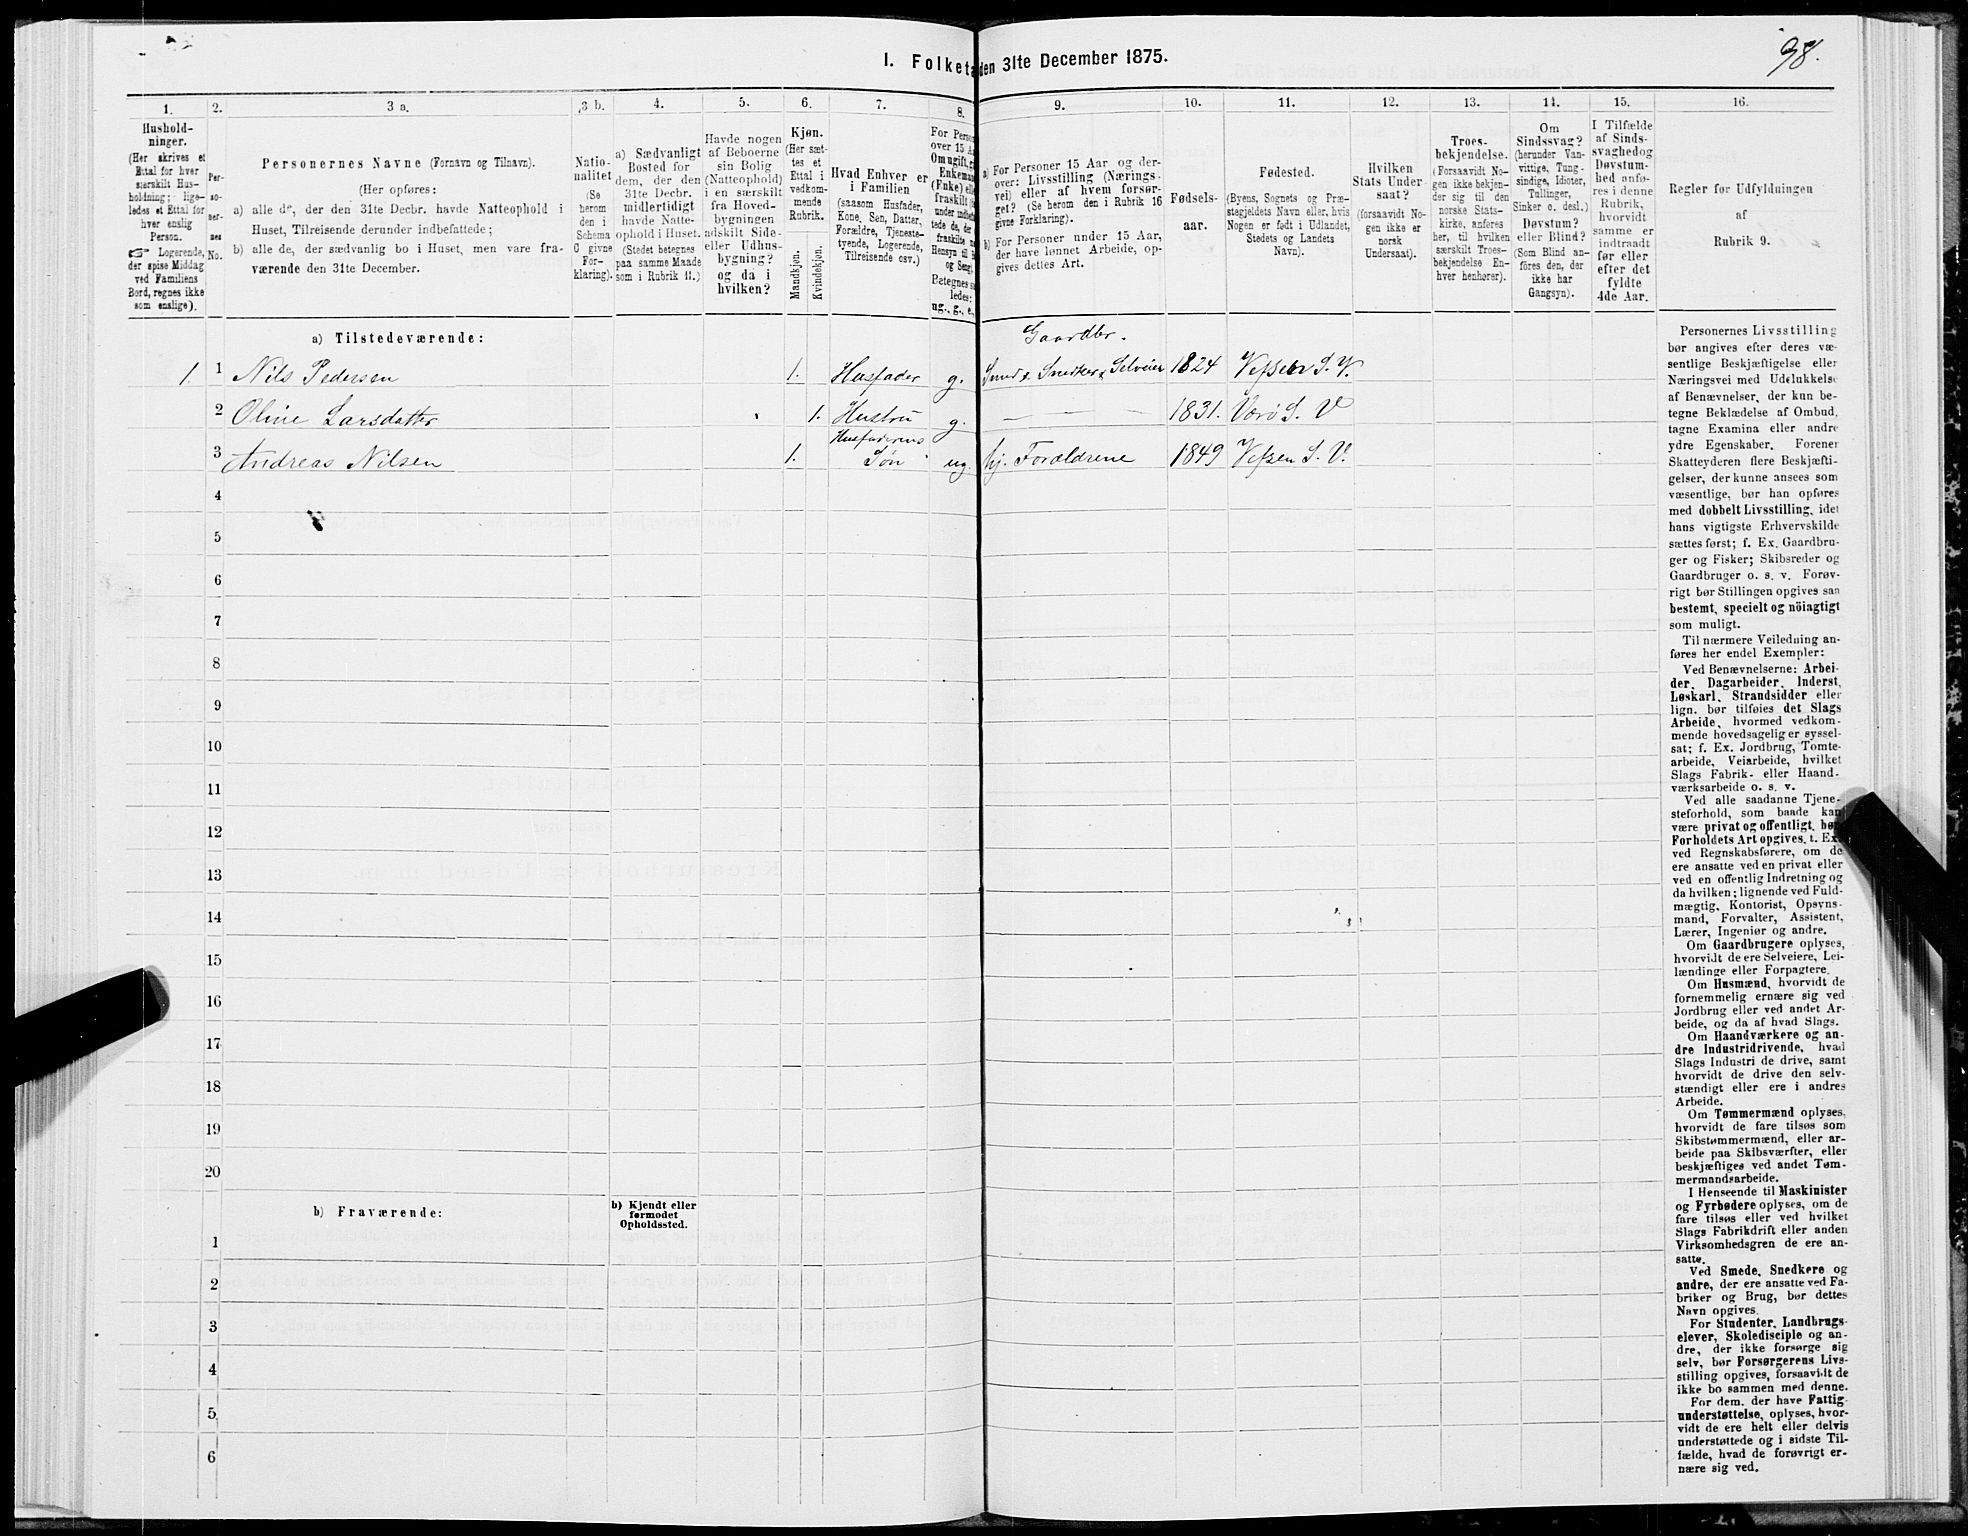 98.
I. Folketa den 31te December 1875.
1. 2. 3 a. 3 b. 4. 5. 6. 7. 8. 9. 10. 11. 12. 13. 14. 15. 16.
Hushold-
ninger.
(Her skrives et
Ettal for hver
særskilt Hus-
holdning; lige-
ledes et Ettal for
hver enslig
Person.
Logerende,
der spise Middag
ved Familiens
Bord, regnes ikke
som enslige).
Per-
so-
ner-
nes
No.
Personernes Navne (Fornavn og Tilnavn).
(Her opføres:
a) alle de, der den 31te Decbr. havde Natteophold i
Huset, Tilreisende derunder indbefattede;
b) alle de, der sædvanlig bo i Huset, men vare fra-
værende den 31te December.
Natio-
nalitet
(Se
herom
den i
Schema
G givne
For-
klaring).
a) Sædvanligt
Bosted for
dem, der den
31te Decbr.
midlertidigt
havde Natte-
ophold i Huset.
(Stedet betegnes
paa samme Maade
som i Rubrik 11.)
Havde nogen
af Beboerne
sin Bolig
(Natteophold)
i en særskilt
fra Hoved-
bygningen
adskilt Side-
eller Udhus-
bygning?
og da i
hvilken?
Kjøn.
(Her sæt-
tes et
Ettal i
vedkom-
mende
Rubrik.
Mandkjøn.
Kvindekjøn.
Hvad Enhver er
i Familien
(saasom Husfader,
Kone, Søn, Datter,
Forældre, Tjeneste-
tyende, Logerende,
Tilreisende osv.)
For Perso
over 15 A
Om ugift, g
Enkeman
(Enke) elle
fraskilt (s
under indbe
tede de, der
fraskilte m
Hensyn til B
og Seng).
Betegnes sa
ledes:
ug., g., e.,
a) For Personer 15 Aar og der-
over: Livsstilling (Nærings-
vei) eller af hvem forsør-
get? (Se herom den i Rubrik 16
givne Forklaring).
b) For Personer under 15 Aar,
der have lønnet Arbeide, op-
gives dettes Art.
Fødsels-
aar.
Fødested.
(Byens, Sognets og Præ-
stegjeldets Navn eller, hvis
Nogen er født i Udlandet,
Stedets og Landets
Navn).
Hvilken
Stats Under-
saat?
(forsaavidt No-
gen ikke er
norsk
Undersaat).
Troes-
bekjendelse.
(Forsaavidt No-
gen ikke bekjen-
der sig til den
norske Stats-
kirke, anføres
her, til hvilken
særskilt Troes-
bekjendelse En-
hver henhører).
Om
Sindssvag?
(herunder Van-
vittige, Tung-
sindige, Idioter,
Tullinger,
Sinker o. desl.)
Døvstum?
eller Blind?
(Som Blind an-
føres den, der
ikke har
Gangsyn).
I Tilfælde
af Sinds-
svaghed og
Døvstum-
hed anfø-
res i denne
Rubrik,
hvorvidt
samme er
indtraadt
før eller
efter det
fyldte
4de Aar.
Regler for Udfyldningen
af
Rubrik 9.
a) Tilstedeværende:
Gaardbr.
1. 1 Nils Pedersen 1. Husfader g. Smed, Snedker, Selveier 1824 Vefsen S. V.
2 Oline Larsdatter 1. Hustru g. — — — 1831. Værø S. V
Husfaderens
3 Andreas Nilsen 1. Søn ug. hj. Forældrene 1849 Vefsen S. V.
4
5
6
7
8
9
10
11
12
13
14
15
16
17
18
19
20
b) Fraværende:
b) Kjendt eller
formodet
Opholdssted.
1
2
3
4
5
6
Personernes Livsstilling
bør angives efter deres væ-
sentlige Beskjæftigelse eller
Næringsvei med Udelukkelse
af Benævnelser, der kun be-
tegne Beklædelse af Ombud,
tagne Examina eller andre
ydre Egenskaber. Forener
Skatteyderen flere Beskjæfti-
gelser, der kunne ansees som
væsentlige, bør han opføres
med dobbelt Livsstilling, idet
hans vigtigste Erhvervskilde
sættes først; f. Ex. Gaardbru-
ger og Fisker; Skibsreder og
Gaardbruger o. s. v. Forøv-
rigt bør Stillingen opgives saa
bestemt, specielt og nöiagtigt
som muligt.
Til nærmere Veiledning an-
føres her endel Exempler:
Ved Benævnelserne: Arbei-
der, Dagarbeider, Inderst,
Løskarl, Strandsidder eller
lign. bør tilføies det Slags
Arbeide, hvormed vedkom-
mende hovedsagelig er syssel-
sat; f. Ex. Jordbrug, Tomte-
arbeide, Veiarbeide, hvilket
Slags Fabrik- eller Haand-
værksarbeide o. s. v.
Ved alle saadanne Tjene-
steforhold, som baade kan
være privat og offentligt, bør
Forholdets Art opgives, f. Ex.
ved Regnskabsførere, om de
ere ansatte ved en privat eller
ved en offentlig Indretning og
da hvilken; lignende ved Fuld-
mægtig, Kontorist, Opsyns-
mand, Forvalter, Assistent,
Lærer, Ingeniør og andre.
Om Gaardbrugere oplyses,
hvorvidt de ere Selveiere, Lei-
lændinge eller Forpagtere.
Om Husmænd, hvorvidt de
fornemmelig ernære sig ved
Jordbrug eller ved andet Ar-
beide, og da af hvad Slags.
Om Haandværkere og an-
dre Industridrivende, hvad
Slags Industri de drive, samt
hvorvidt de drive den selv-
stændigt eller ere i andres
Arbeide.
Om Tømmermænd oplyses,
hvorvidt de fare tilsøs som
Skibstømmermænd, eller ar-
beide paa Skibsværfter, eller
beskjæftiges ved andet Tøm-
mermandsarbeide.
I Henseende til Maskinister
og Fyrbødere oplyses, om de
fare tilsøs eller ved hvilket
Slags Fabrikdrift eller anden
Virksomhedsgren de ere an-
satte.
Ved Smede, Snedkere og
andre, der ere ansatte ved Fa-
briker og Brug, bør dettes
Navn opgives.
For Studenter, Landbrugs-
elever, Skoledisciple og an-
dre, der ikke forsørge sig
selv, bør Forsørgerens Livs-
stilling opgives, forsaavidt de
ikke bo sammen med denne.
For dem, der have Fattig-
understøttelse, oplyses, hvor-
vidt de ere helt eller delvis
understøttede og i sidste Til-
fælde, hvad de forøvrigt er-
nære sig ved.